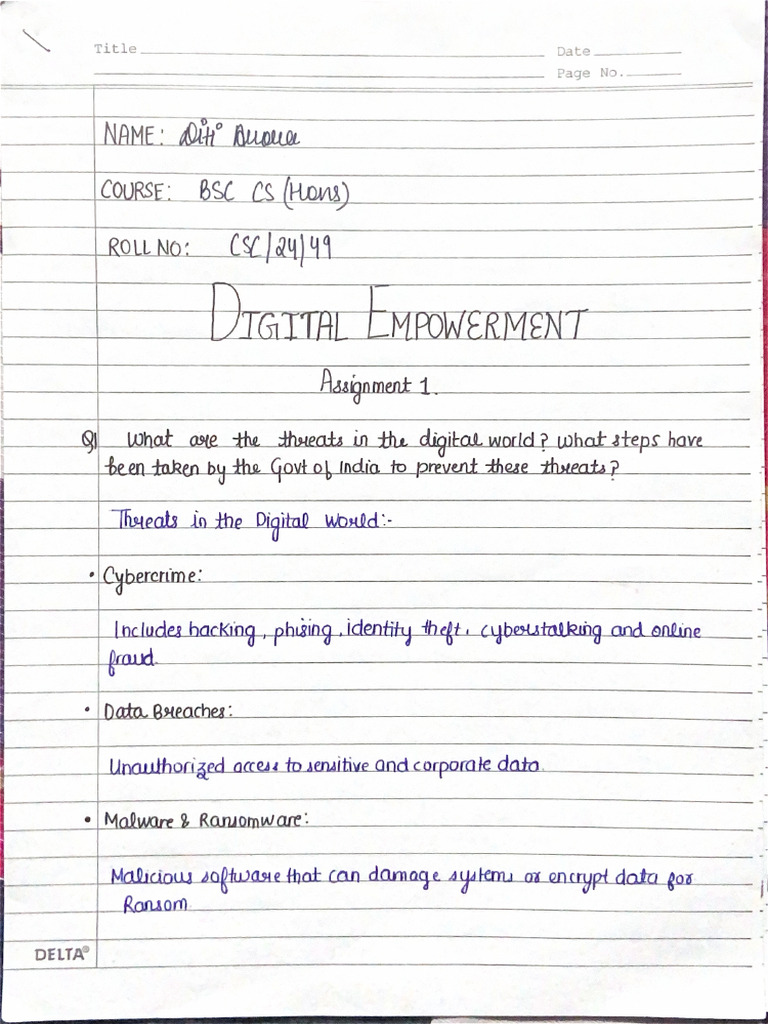 Title
Date
Page No.
NAME: Diti
COURSE: BSC CS (Hons)
ROLL NO: CSC/24/49
DIGITAL EMPOWERMENT
Assignment 1.
Q1 What are the threats in the digital world? What steps have
been taken by the Govt of India to prevent these threats?
Threats in the Digital World:-
• Cybercrime:
Includes hacking, phising, identity theft, cyberstalking and online
fraud.
• Data Breaches:
Unauthorized access to sensitive and corporate data.
• Malware & Ransomware:
Malicious software that can damage systems or encrypt data for
Ransom
DELTA®